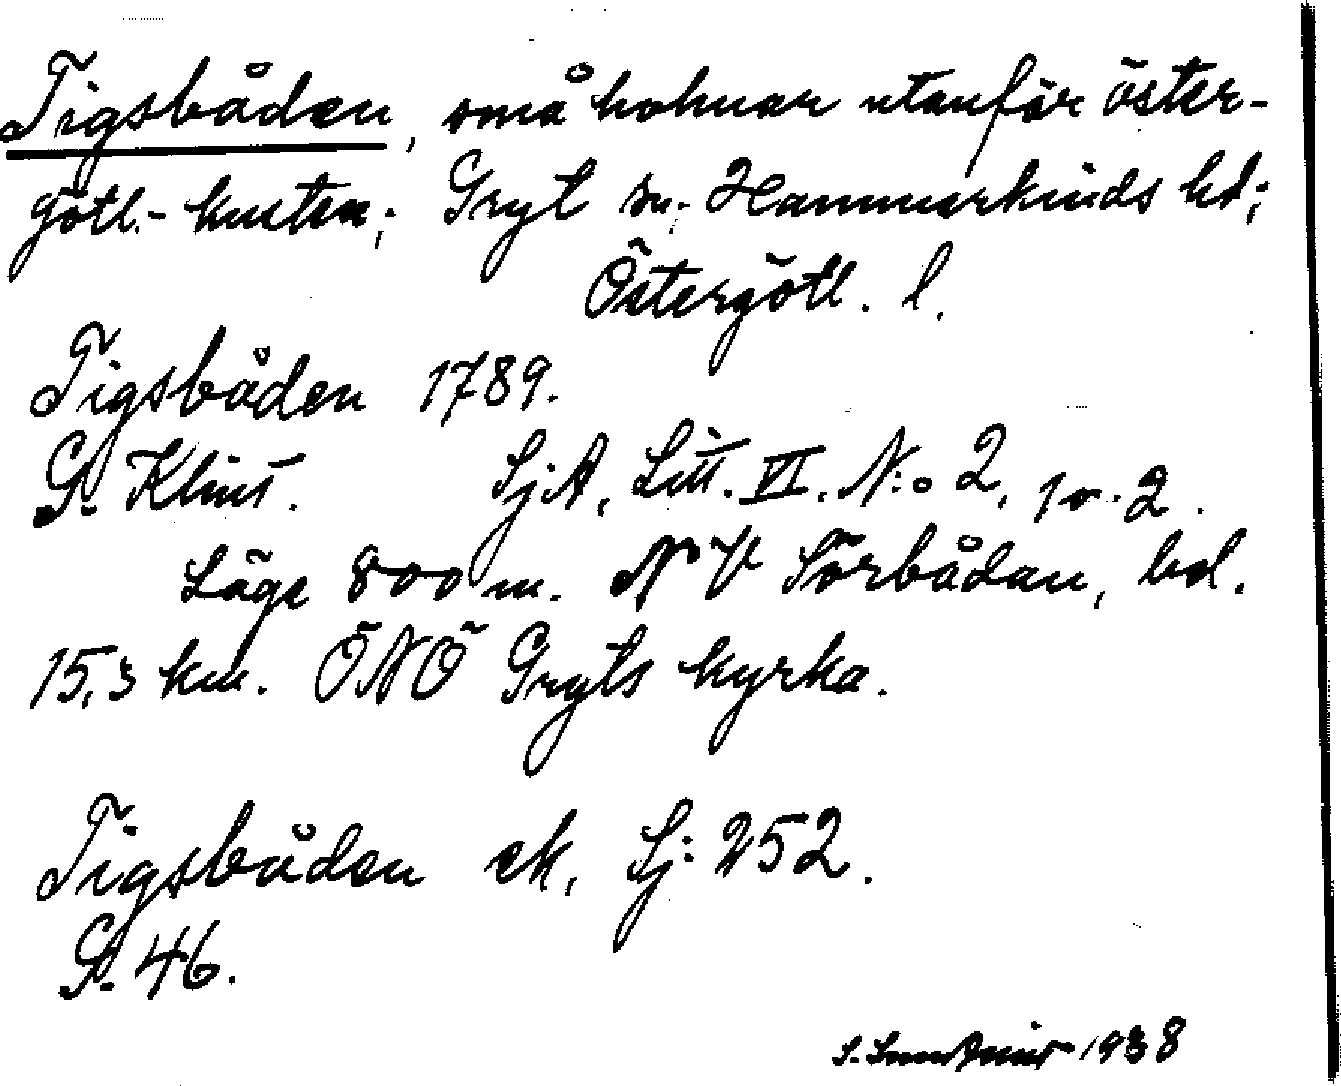 Tigsbåden, små holmar utanför öster-
götl.- kusten; Gryt sn. Hammarkinds hd;
Östergötl. l.
Tigsbåden 1789.
G. Klint. SjA, Litt. VI. N:o 2, 1 o. 2.
Läge 800 m. NV Sörbådan, bel.
15,3 km. ÖNÖ Gryts kyrka.
Tigsbåden ek, Sj: 252.
G. 46.
S. 1938